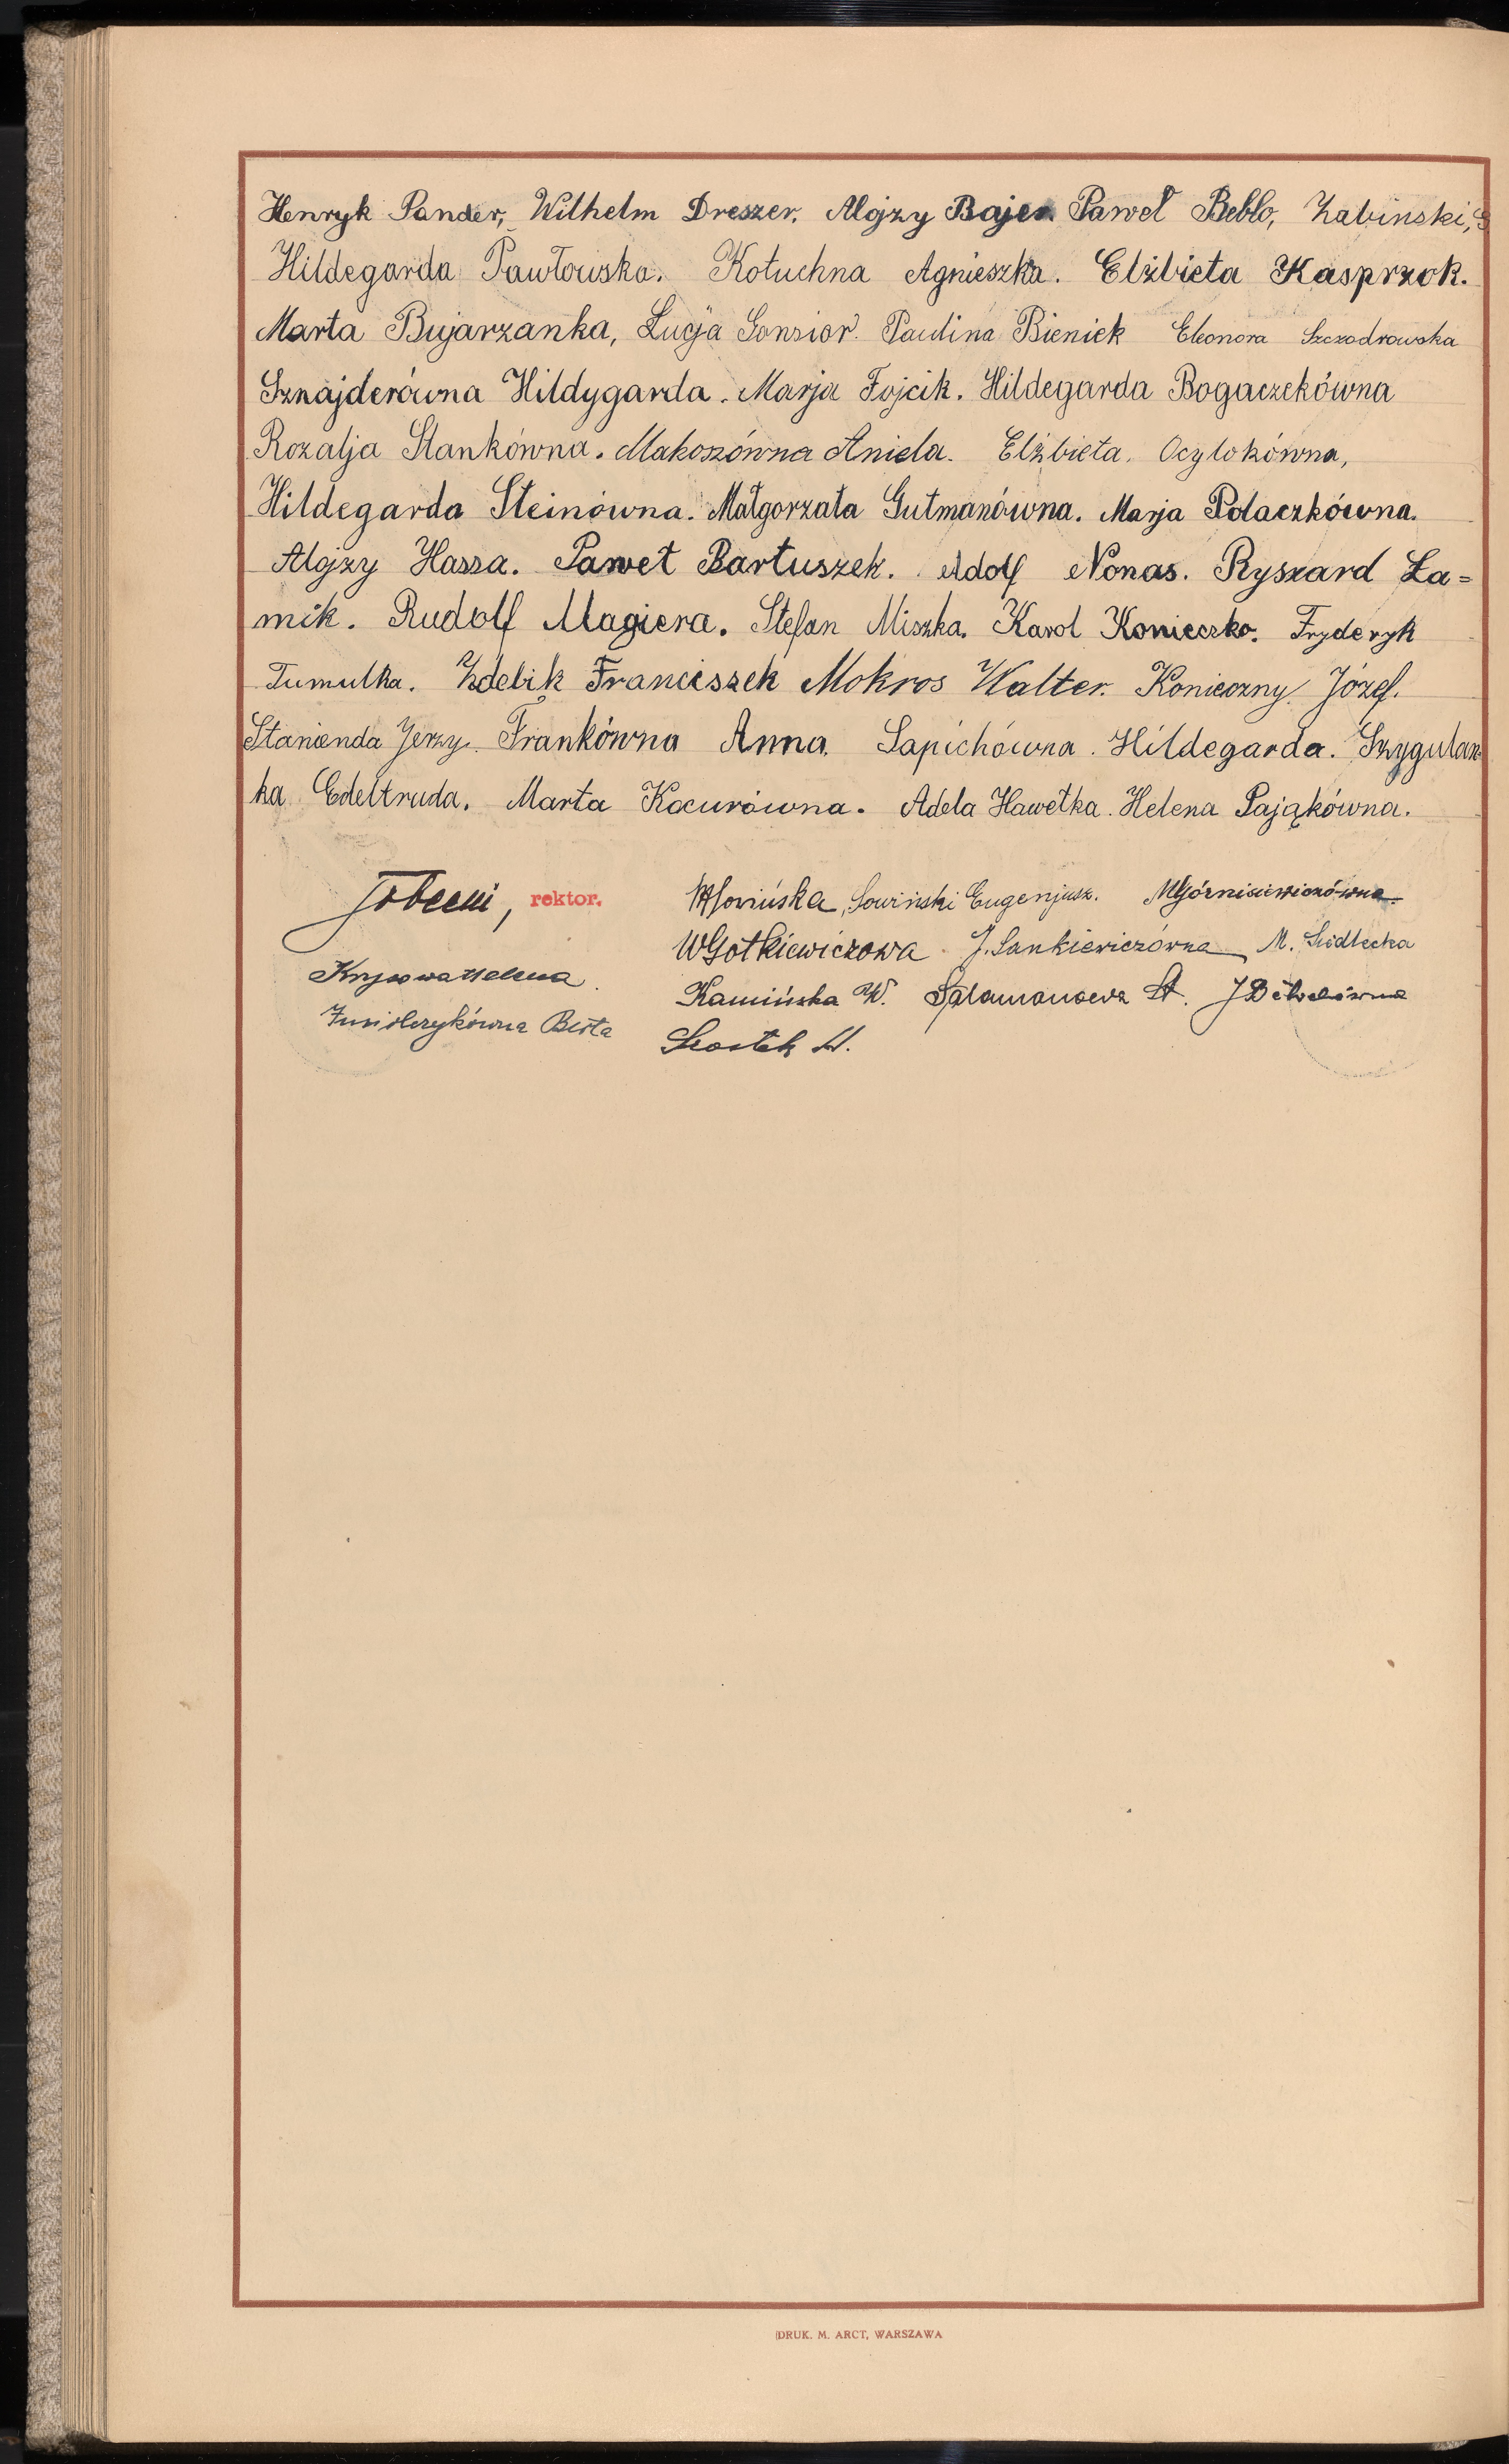 Henryk Pander, Wilhelm Dreszer. Alojzy Bajer Paweł Beblo, Żabinski,
Hildegarda Pawłowska. Kołuchna Agnieszka. Elżbieta Kasprzok.
Marta Bujarzanka, Łucja Gonsior. Paulina Bieniek Eleonora Szczodrowska
Sznajderówna Hildygarda. Marja Fojcik. Hildegarda Bogaczekówna
Rozalja Stankówna. Makoszówna Aniela. Elżbieta. Ocylokówna,
Hildegarda Steinówna. Małgorzata Gutmanówna. Marja Polaczkówna.
Alojzy Hassa. Paweł Bartuszek. Adolf Nonas. Ryszard Ła=
mik. Rudolf Magiera. Stefan Miszka. Karol Konieczko. Fryderyk
Tumulka. Zdebik Franciszek Mokros Walter. Konieczny Józef.
Stanienda Jerzy. Frankówna Anna. Sapichówna. Hildegarda. Szygulan
ka Edeltruda. Marta Kocurówna. Adela Hawełka. Helena Pająkówna.
rektor. Sowiński Eugenjusz. MGórnisiewiczówna
WGotkiewiczowa J. Sankiewiczówna M. Siedlecka
Helena Kamińska W. Salamonowa St.
Berta
Szostek H.
DRUK. M. ARCT, WARSZAWA